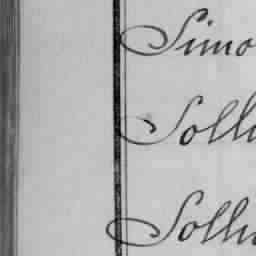 Simo
Solli
Solli